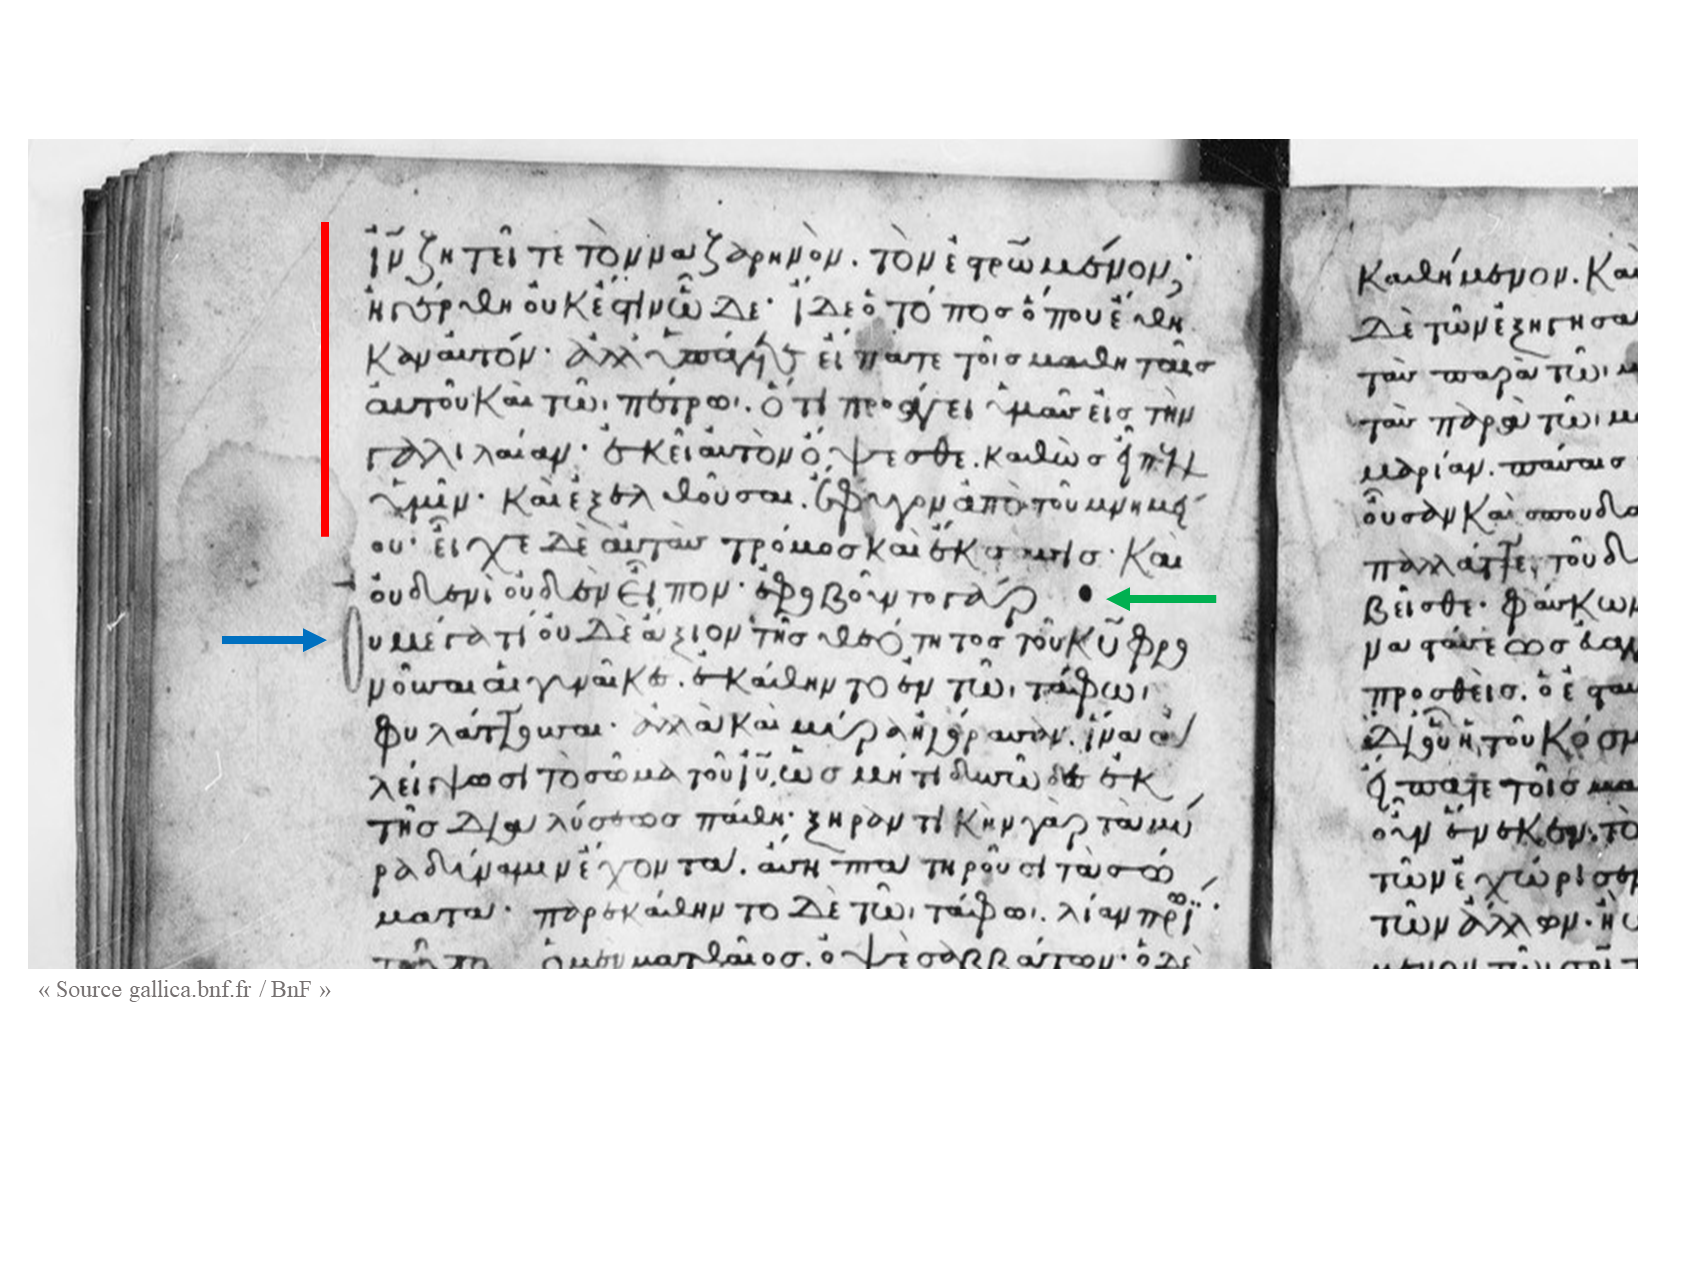 ἰν ζητεῖτε τὸν ναζαρηνὸν. τὸν ἐστρωμένον;
ἠγέρθη οὐκ ἔστιν ὧδε· ἴδε ὁ τόπος ὅπου ἔθη
καν αὐτόν· ἀλλ ὑπάγετε εἴπατε τοῖς μαθηταῖς
αὐτοῦ καὶ τῶι πέτρωι. ὅτι προάγει ὑμᾶς εἰς τὴν
γαλιλαίαν· ἐκεῖ αὐτὸν ὄψεσθε. καθὼς εἶπεν
ὑμῖν· καὶ ἐξελθοῦσαι. ἔφυγον ἀπὸ τοῦ μνημεί
ου· εἶχε δὲ αὐτὰς τρόμος καὶ ἔκστασις· καὶ
οὐδενὶ οὐδὲν εἶπον· ἐφοβοῦντο γάρ
Ου μέγα τί οὐδὲ ἄξιον τῆς θεότητος τοῦ κυ φρο
νοῦσαι αἱ γυναῖκε. ἐκάθηντο ἐν τῶι τάφωι
φυλάττουσαι· ἀλλὰ καὶ μύρα ἠγόρασαν. ἵνα ἀ
λείψωσι τὸ σῶμα τοῦ ιυ, ὡς μήτι ἐκ
τῆς διαλύσεως πάθη· ξηραντικὴν γὰρ τὰ μύ
ρα δύναμιν ἔχοντα. ἀσηπτα τηροῦσι τὰ σώ
ματα· παρεκάθηντο δὲ τῶι τάφωι. λίαν πρωῒ·
ὁ μὲν ματθαῖος. ὀψὲ σαββάτων· ὁ δὲ
καθήμενον. Καὶ
δὲ τῶν ἐξηγησα
τὰς παρὰ τῶι μ
τὰς παρὰ τῶι μ
μαρίαν. πάσαις
οὖσαν καὶ σπουδα
παλλάττει, τοῦ δ
βεῖσθε·
προσθεὶς. ὁ ἐσταυ
τοῦ κόσμ
εἴπατε τοῖς μα
τῶν ἐχώρισεν
τῶν ἄλλων· ἢ ὡ
« Source gallica.bnf.fr / BnF »